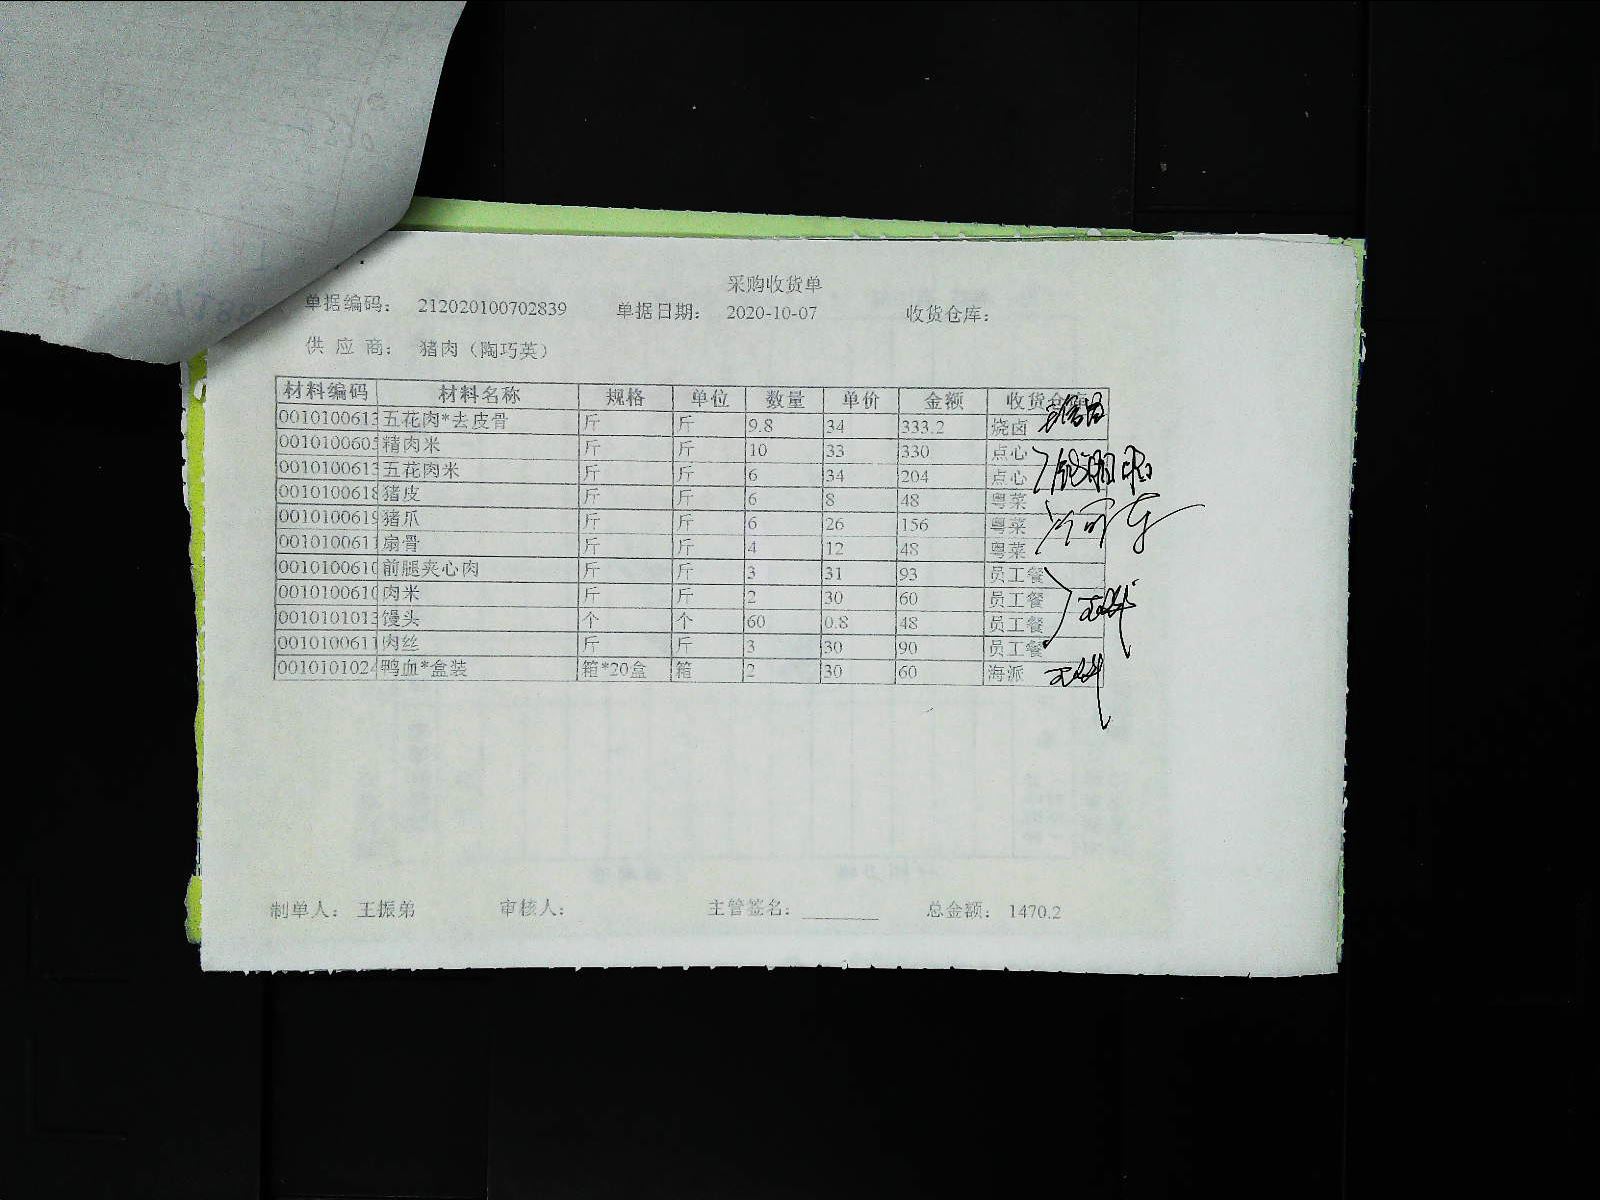 采购收货单
单据编码： 212020100702839 单据日期： 2020-10-07 收货仓库：
供 应 商： 猪肉（陶巧英）
材料编码 材料名称 规格 单位 数量 单价 金额 收货仓库
0010100613 五花肉*去皮骨 斤 斤 9.8 34 333.2 烧卤
0010100605 精肉米 斤 斤 10 33 330 点心
0010100613 五花肉米 斤 斤 6 34 204 点心
0010100618 猪皮 斤 斤 6 8 48 粤菜
0010100619 猪爪 斤 斤 6 26 156 粤菜
0010100611 扇骨 斤 斤 4 12 48 粤菜
0010100610 前腿夹心肉 斤 斤 3 31 93 员工餐
0010100610 肉米 斤 斤 2 30 60 员工餐
0010101013 馒头 个 个 60 0.8 48 员工餐
0010100611 肉丝 斤 斤 3 30 90 员工餐
0010101024 鸭血*盒装 箱*20盒 箱 2 30 60 海派
制单人： 王振弟 审核人： 主管签名： 总金额： 1470.2